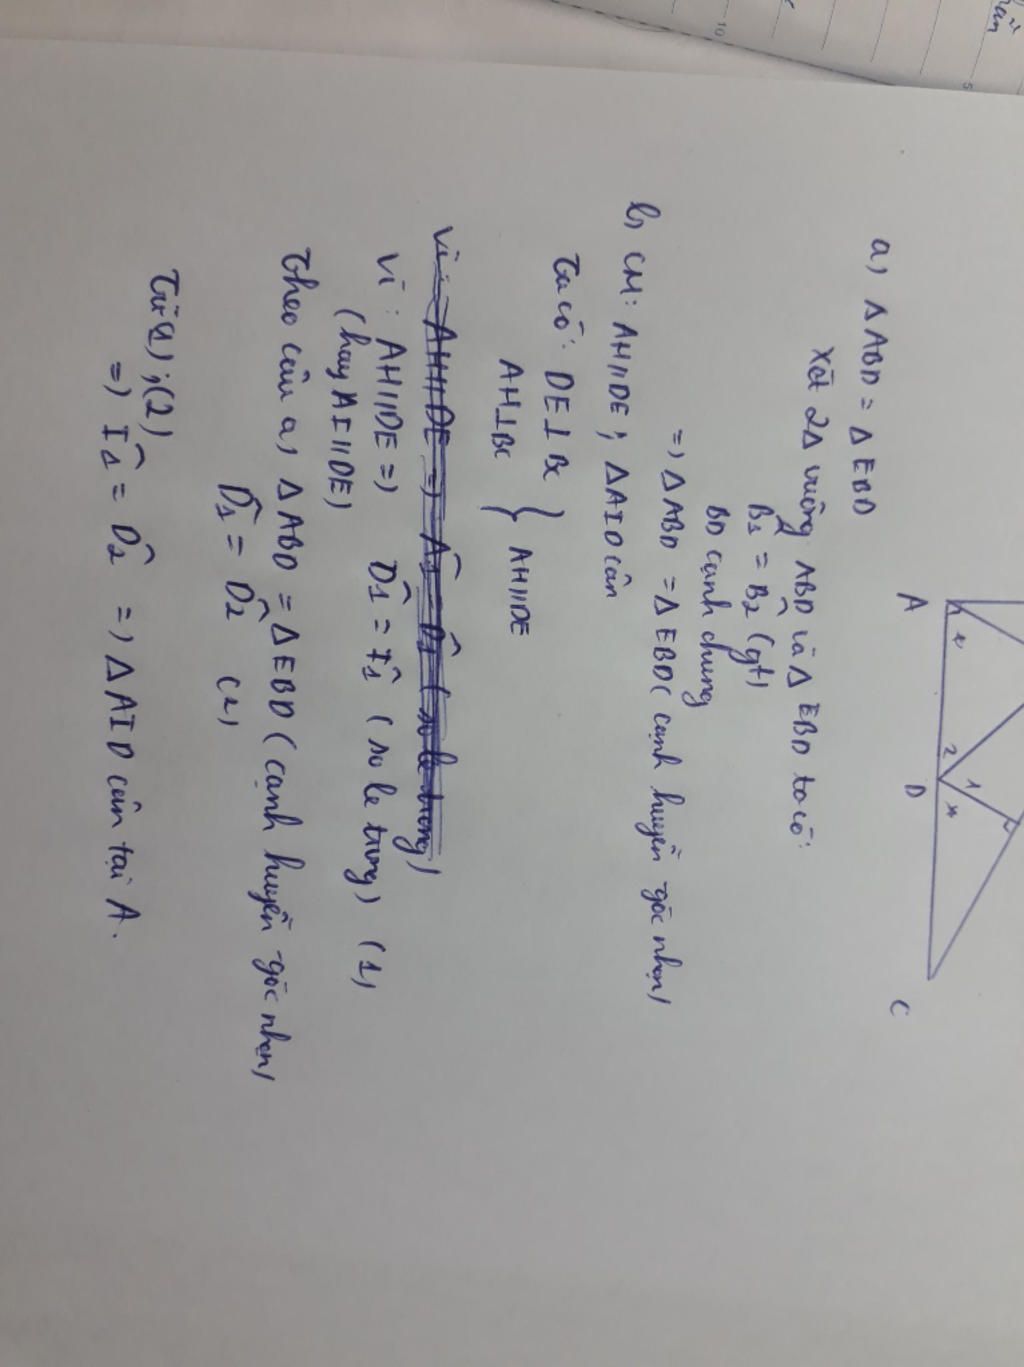 A
x
2
1
D
x
C
a, ΔABD = ΔEBD
Xét 2Δ vuông ABD và Δ EBD ta có:
B̂1 = B̂2 (gt)
BD cạnh chung
=) ΔABD = ΔEBD (cạnh huyền góc nhọn)
b, CM: AH//DE; ΔAID cân
Ta có: DE⊥BC
AH⊥BC } AH//DE
Vì: AH//DE =) D̂1 = Î1 (so le trong) (1)
(hay AI//DE)
Theo câu a, ΔABD = ΔEBD (cạnh huyền góc nhọn)
D̂1 = D̂2 (2)
Từ (1); (2)
=) Î1 = D̂2 =) ΔAID cân tại A.
10
5